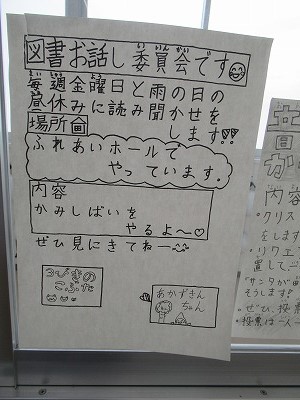 図書お話し委員会です
毎週金曜日と雨の日の
昼休みに読み聞かせを
します!!
場所
ふれあいホールで
やっています。
内容
かみしばいを
やるよ〜♡
ぜひ見にきてね〜
3びきの
こぶた
あかずきん
ちゃん
内容
・クリス
をします
・リクエ
置して、
サンタが
そうします?
・ぜひ、投票
・投票は一人